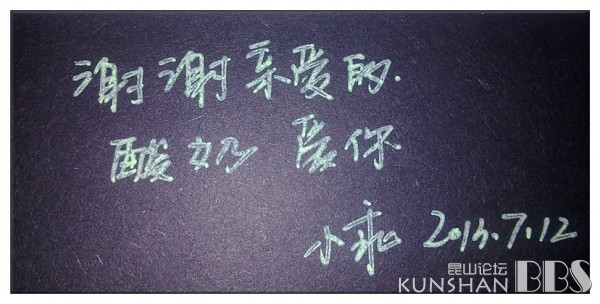 谢谢亲爱的.
酸奶 爱你
小乖 2013.7.12
昆山论坛
KUNSHAN BBS